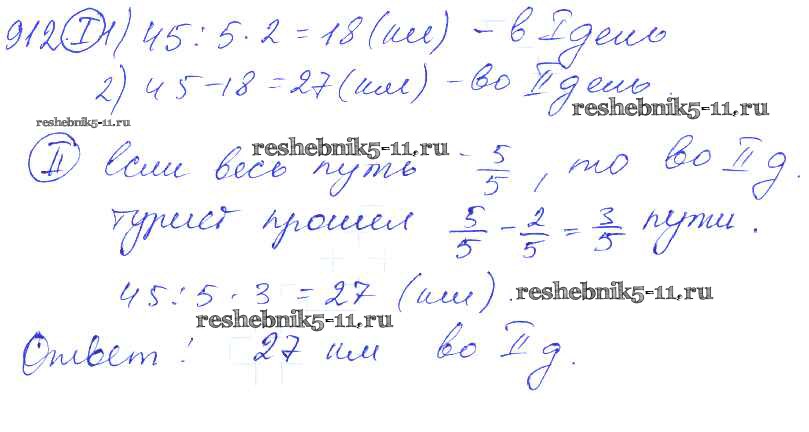 912. I 1) 45 : 5 · 2 = 18 (км) – в I день
2) 45 – 18 = 27 (км) – во II день.
reshebnik5-11.ru
reshebnik5-11.ru
reshebnik5-11.ru
II Если весь путь – 5/5, то во II д.
турист прошел 5/5 – 2/5 = 3/5 пути.
45 : 5 · 3 = 27 (км).
reshebnik5-11.ru
reshebnik5-11.ru
Ответ: 27 км во II д.